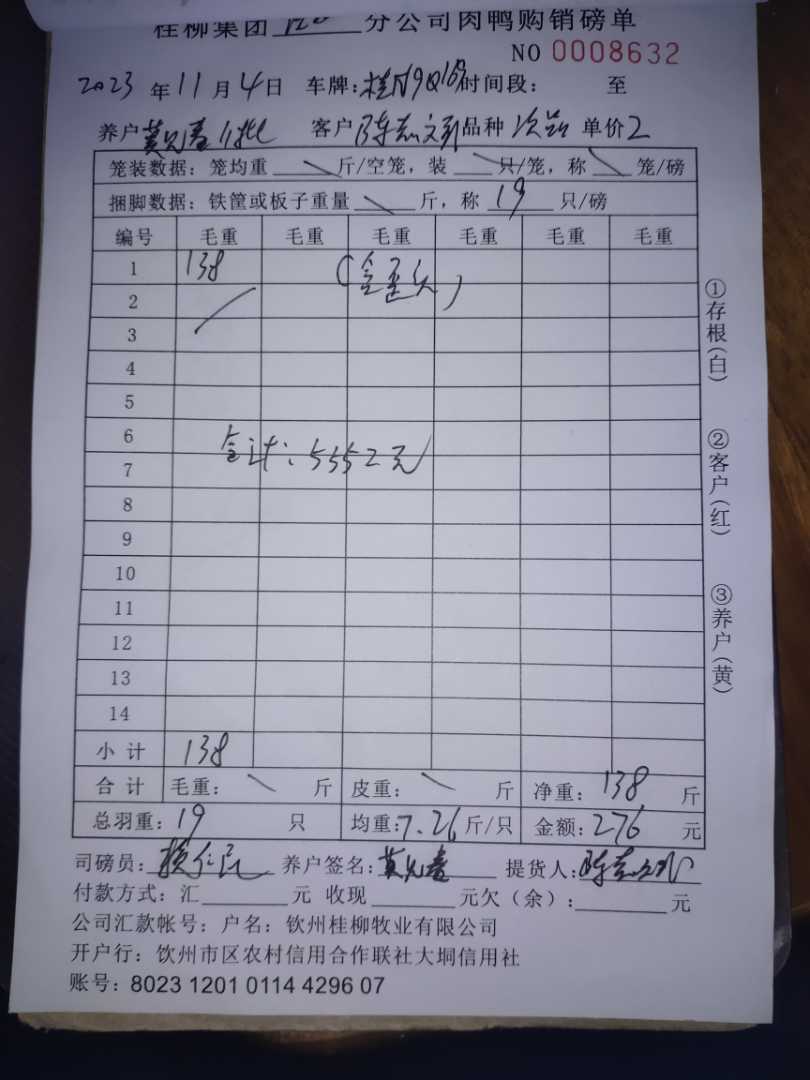 桂柳集团 分公司肉鸭购销磅单
NO 0008632
2023年11月4日 车牌:桂N9Q169时间段: 至
养户 客户 陈志 品种 次品 单价2
笼装数据: 笼均重 斤/空笼, 装 只/笼, 称 笼/磅
捆脚数据: 铁筐或板子重量 斤, 称 19 只/磅
编号 毛重 毛重 毛重 毛重 毛重 毛重
1 138 (含歪头)
2
3
4
5
6
合计: 5352元
7
8
9
10
11
12
13
14
小计 138
合计 毛重: 斤 皮重: 斤 净重: 138 斤
总羽重: 19 只 均重:7.26斤/只 金额:276 元
司磅员: 养户签名: 提货人:
付款方式: 汇 元 收现 元欠(余): 元
公司汇款帐号: 户名: 钦州桂柳牧业有限公司
开户行: 钦州市区农村信用合作联社大垌信用社
账号: 8023 1201 0114 4296 07
①存根(白)
②客户(红)
③养户(黄)